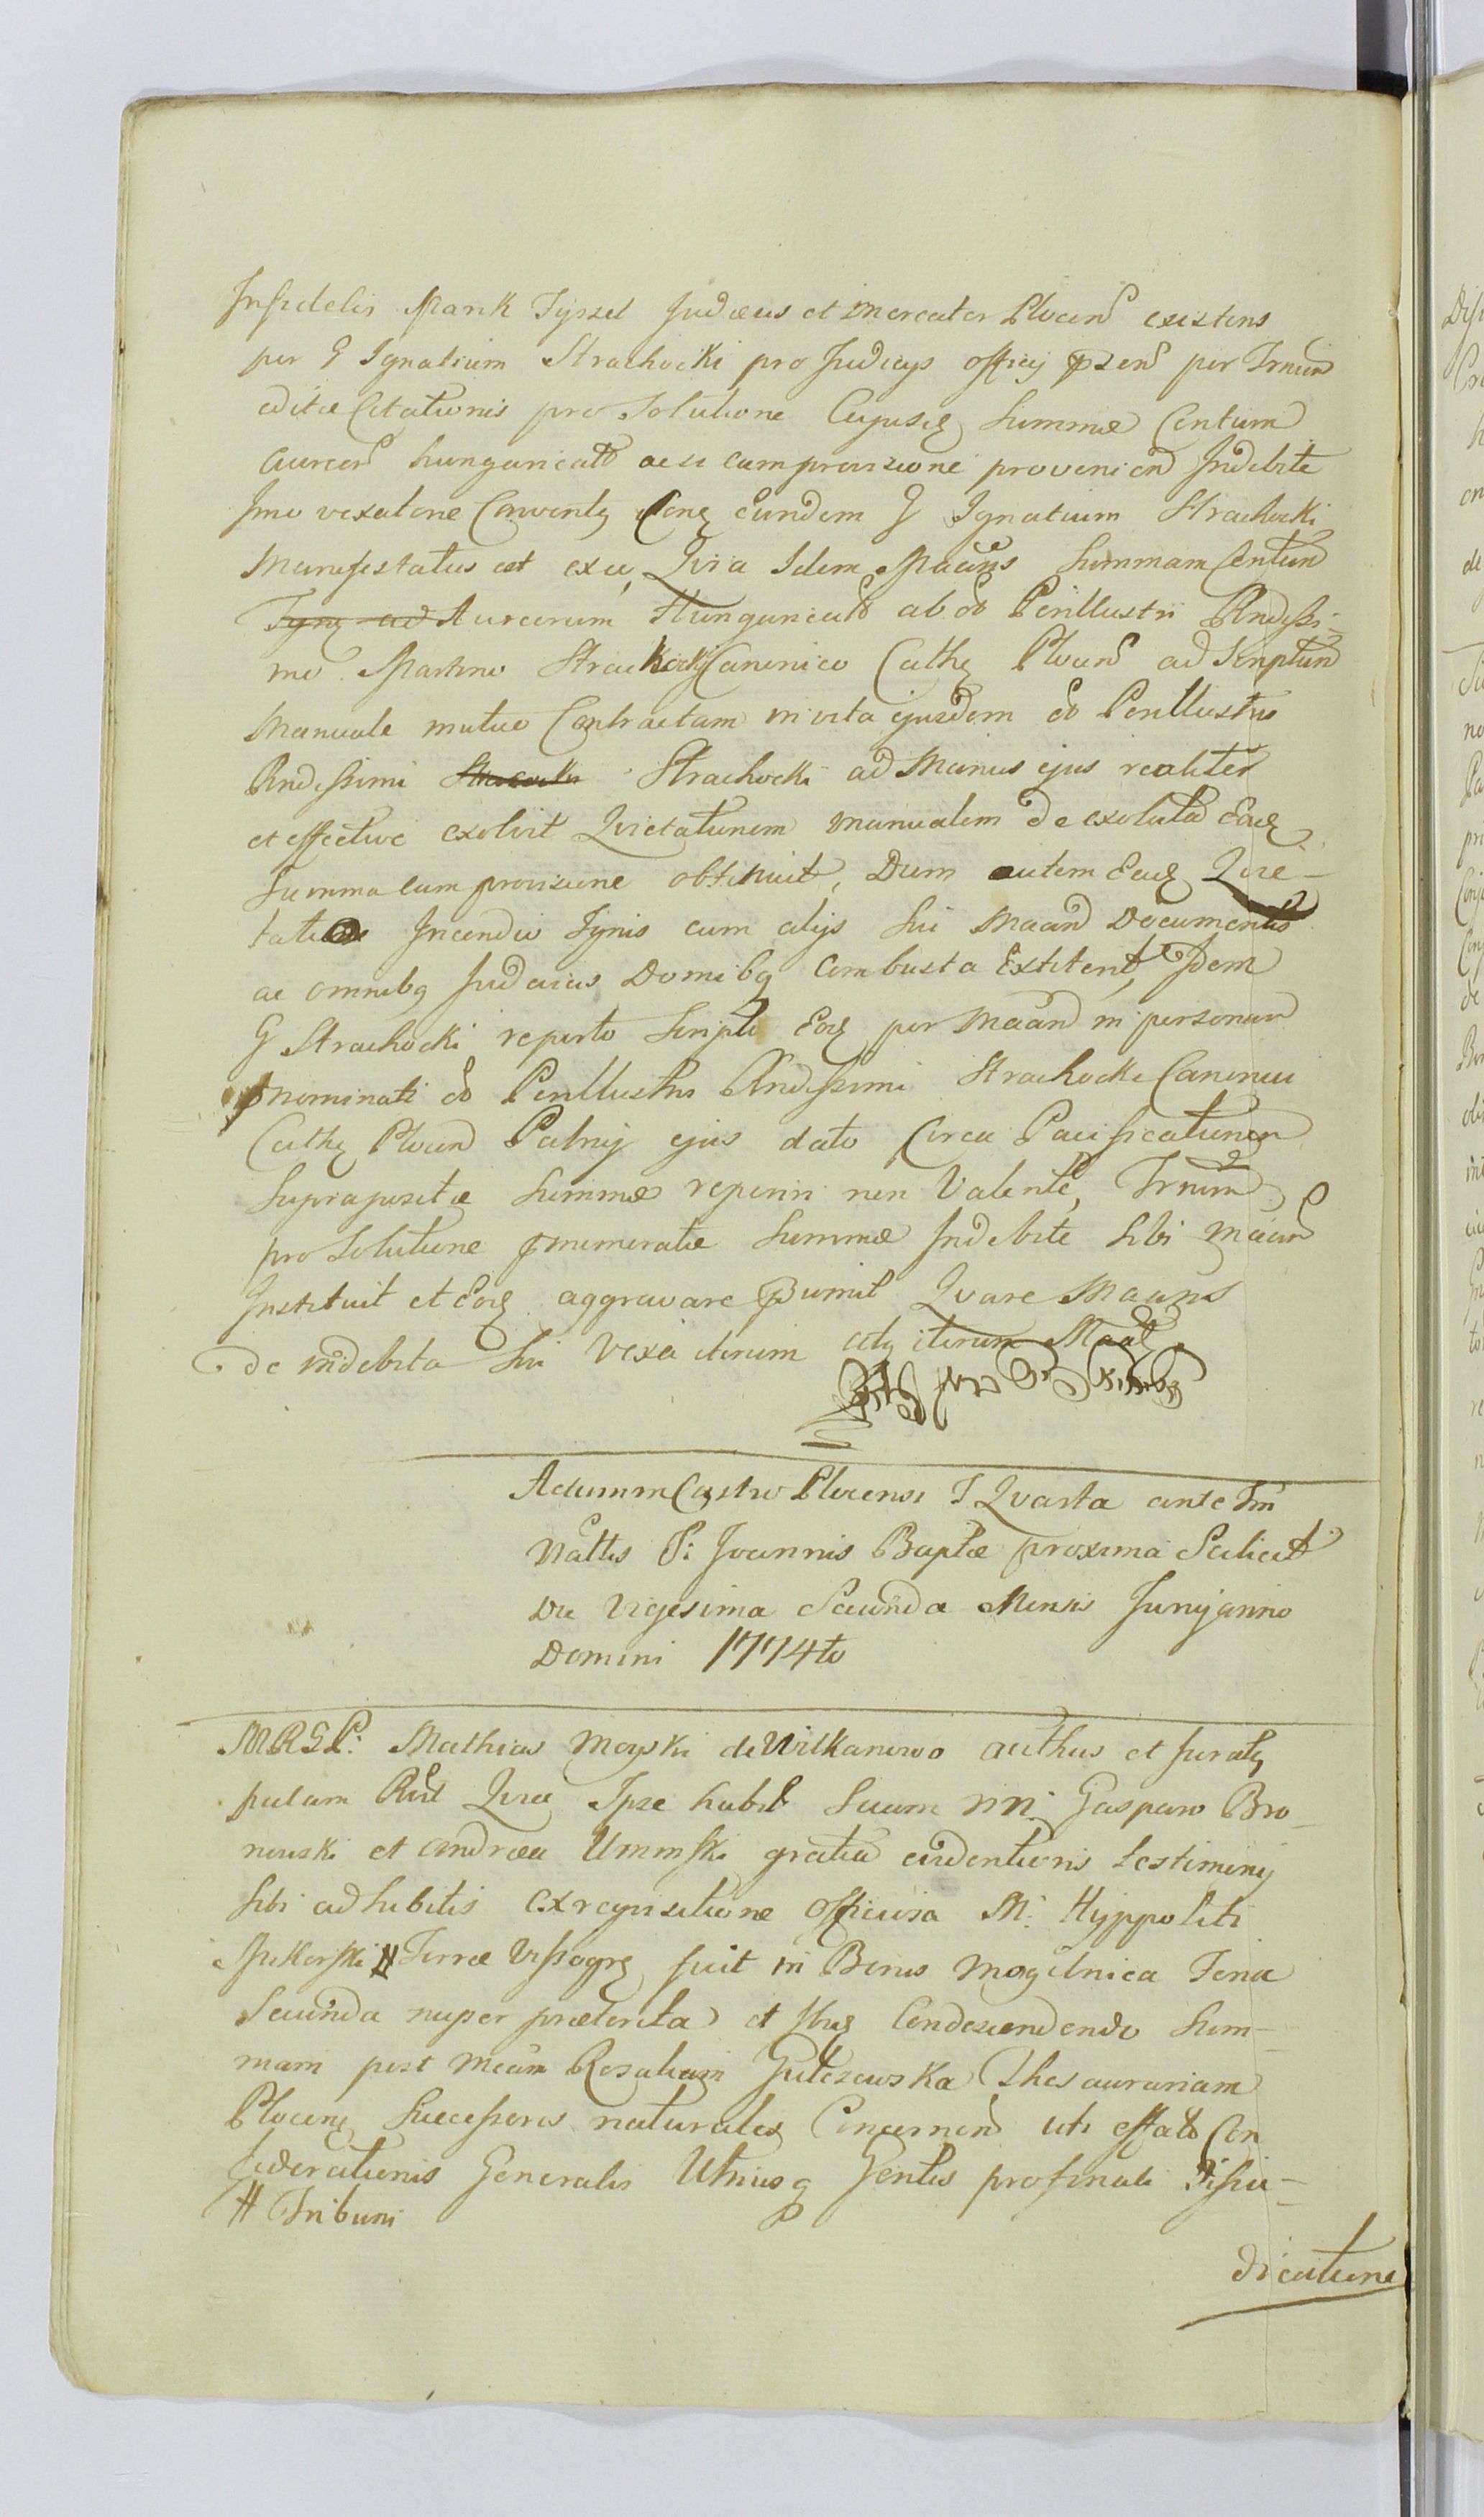 Infidelis Mark Tyszel Judæus et Mercator Plocens existens
per G Ignatium Strachocki pro Judicijs officij pzens per Trnum
editæ Citationis pro Solutione Cujusq Summæ Centum
aureor hungarical ac si cum provisione provenien Indebite
Imo vexatone Convent Conq Eundem G Ignatium Strachocki
Manifestatus est ex eo, Quia Idem Maans Summam Centum
Aureorum Hungarical ab o Perillustri Rndissi-
mo Martino Strachocki Canonico Cath Plocens ad Scriptum
Manuale mutuo Contractam in vita ejusdem o Perillustris
Rndissimi Strachocki ad Manus ejus realiter
et effective exolvit Quietationem manualem de exoluta Eaq
Summa cum provisione obtinuit, Dum autem Eaq Quie-
tatio Incendio Ignis cum alijs sui Maan Documentis
ac omnibq Judaicis Domibq Combusta Extiterit, Idem
G Strachocki reperto Scripto Eoq per Maan in personam
pnominati o Perillustris Rndissimi Strachocki Canonici
Cath Plocen Patruj ejus dato Circa Pacificationem
Suprapositæ Summæ reperiri non Valente, Trnum
pro Solutione pnumeratæ Summæ Indebite sibi Maan
Instituit et Eoq aggravare pumit Quare Maans
de indebita sui Vexa iterum atq iterum Maat
Actum in Castro Plocensi F Quarta ante Fm
Nattis S: Joannis Baptæ proxima Scilicet
Die Vigesima Secunda Mensis Junij anno
Domini 1774to
MRGL: Mathias Moyski de Wilkanowo authus et Jurat
palam Rect Quia Ipse habit Secum NN: Gasparo Bro-
nowski et Andrea Uminski gratia evidentioris testimonij
sibi adhibitis ex requisitione officiosa M: Hyppoliti
Pikarski # Terræ Vissogr fuit in Bonis Mogilnica Feria
Secunda nuper præterita et Ibiq Condescendendo Sum-
mam post Mcam Rosaliam Gulczewska Thesaurariam
Plocen Successores naturales Concernen uti effato Con
foederationis Generalis Utriusq Gentis pro finali Disiu-
# Tribuni
dicatione